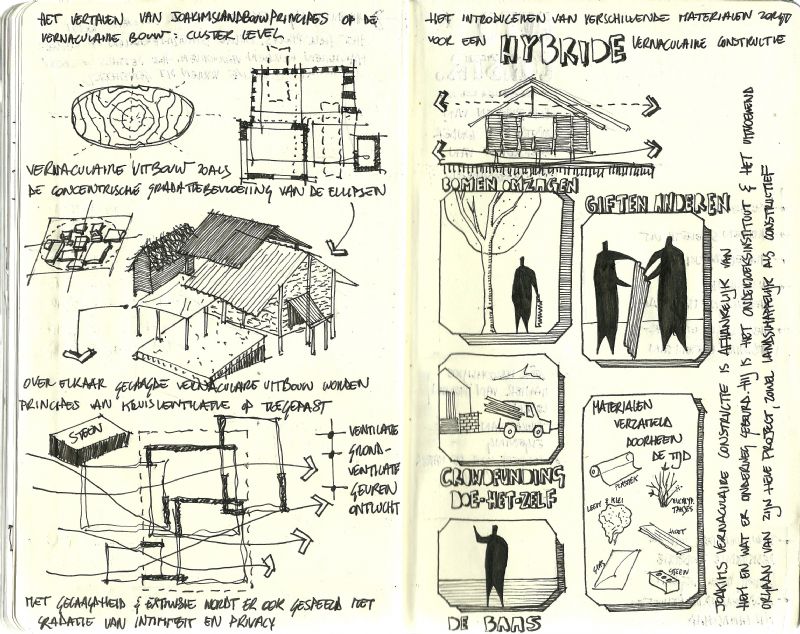 HET VERTALEN VAN JOAKIMSLANDBOUWPRINCIPES OP DE
VERNACULAIRE BOUW: CLUSTER LEVEL
VERNACULAIRE UITBOUW ZOALS
DE CONCENTRISCHE GRADATIEBEVLOEIING VAN DE ELLIPSEN
OVER ELKAAR GELAAGDE VERNACULAIRE UITBOUW WORDEN
PRINCIPES VAN KRUISVENTILATIE OP TOEGEPAST
STEEN
VENTILATIE
GROND-
VENTILATIE
GEUREN
ONTLUCHT
MET GELAAGDHEID & EXTRUSIE WORDT ER OOK GESPEELD MET
GRADATIE VAN INTIMITEIT EN PRIVACY
HET INTRODUCEREN VAN VERSCHILLENDE MATERIALEN ZORGT
VOOR EEN HYBRIDE VERNACULAIRE CONSTRUCTIE
BOMEN OMZAGEN
GIFTEN ANDEREN
CROWDFUNDING
DOE-HET-ZELF
DE BAAS
MATERIALEN
VERZAMELD
DOORHEEN
DE TIJD
PLASTIEK
EUCALYP.
TAKJES
LEEM & KLEI
HOUT
GLAS
STEEN
JOAKIMS VERNACULAIRE CONSTRUCTIE IS AFHANKELIJK VAN
HEM EN WAT ER ONDERWEG GEBEURD. HIJ IS HET ONDERZOEKSINSTITUUT & HET UITVOEREND
ORGAAN VAN ZIJN HELE PROJECT, ZOWEL LANDSCHAPPELIJK ALS CONSTRUCTIEF